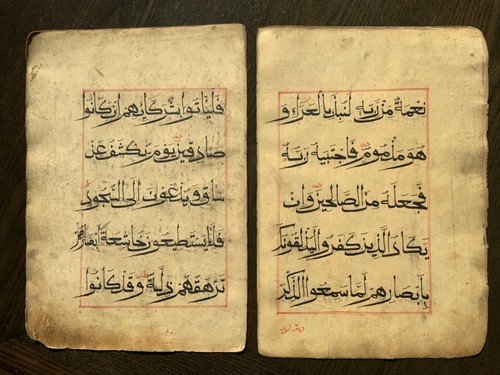 نعمة من ربه لنبذ بالعراء و
هو مذموم فاجتبيه ربه
فجعله من الصالحين وان
يكاد الذين كفروا ليزلقونك
بابصارهم لما سمعوا الذكر
فليأتوا بشركائهم ان كانوا
صادقين يوم يكشف عن
ساق ويدعون الى السجود
فلا يستطيعون خاشعة ابصارهم
ترهقهم ذلة وقد كانوا